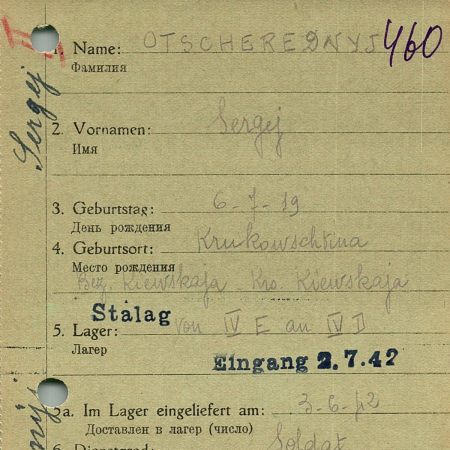 1. Name: OTSCHEREDNYJ 460
Фамилия
Sergej
2. Vornamen: Sergej
Имя
3. Geburtstag: 6-7-19
День рождения
4. Geburtsort: Krukowschtina
Место рождения
Bez. Kiewskaja Krs. Kiewskaja
Stalag
5. Lager: von IV E an IV D
Лагер
Eingang 2.7.42
5a. Im Lager eingeliefert am: 3-6-42
Доставлен в лагер (число)
6. Dienstgrad: Soldat